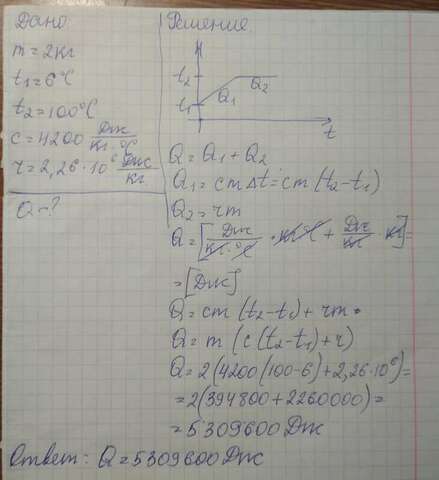 Дано
m = 2 кг
t₁ = 6°C
t₂ = 100°C
c = 4200 Дж/кг·°C
r = 2,26·10⁶ Дж/кг
Q - ?
Решение
t₂
t₁
Q₁
Q₂
t
Q = Q₁ + Q₂
Q₁ = cmΔt = cm(t₂-t₁)
Q₂ = rm
Q = [Дж/кг·°C · кг·°C + Дж/кг · кг] =
= [Дж]
Q = cm(t₂-t₁) + rm
Q = m(c(t₂-t₁)+r)
Q = 2(4200(100-6)+2,26·10⁶) =
= 2(394800+2260000) =
= 5309600 Дж
Ответ: Q = 5309600 Дж